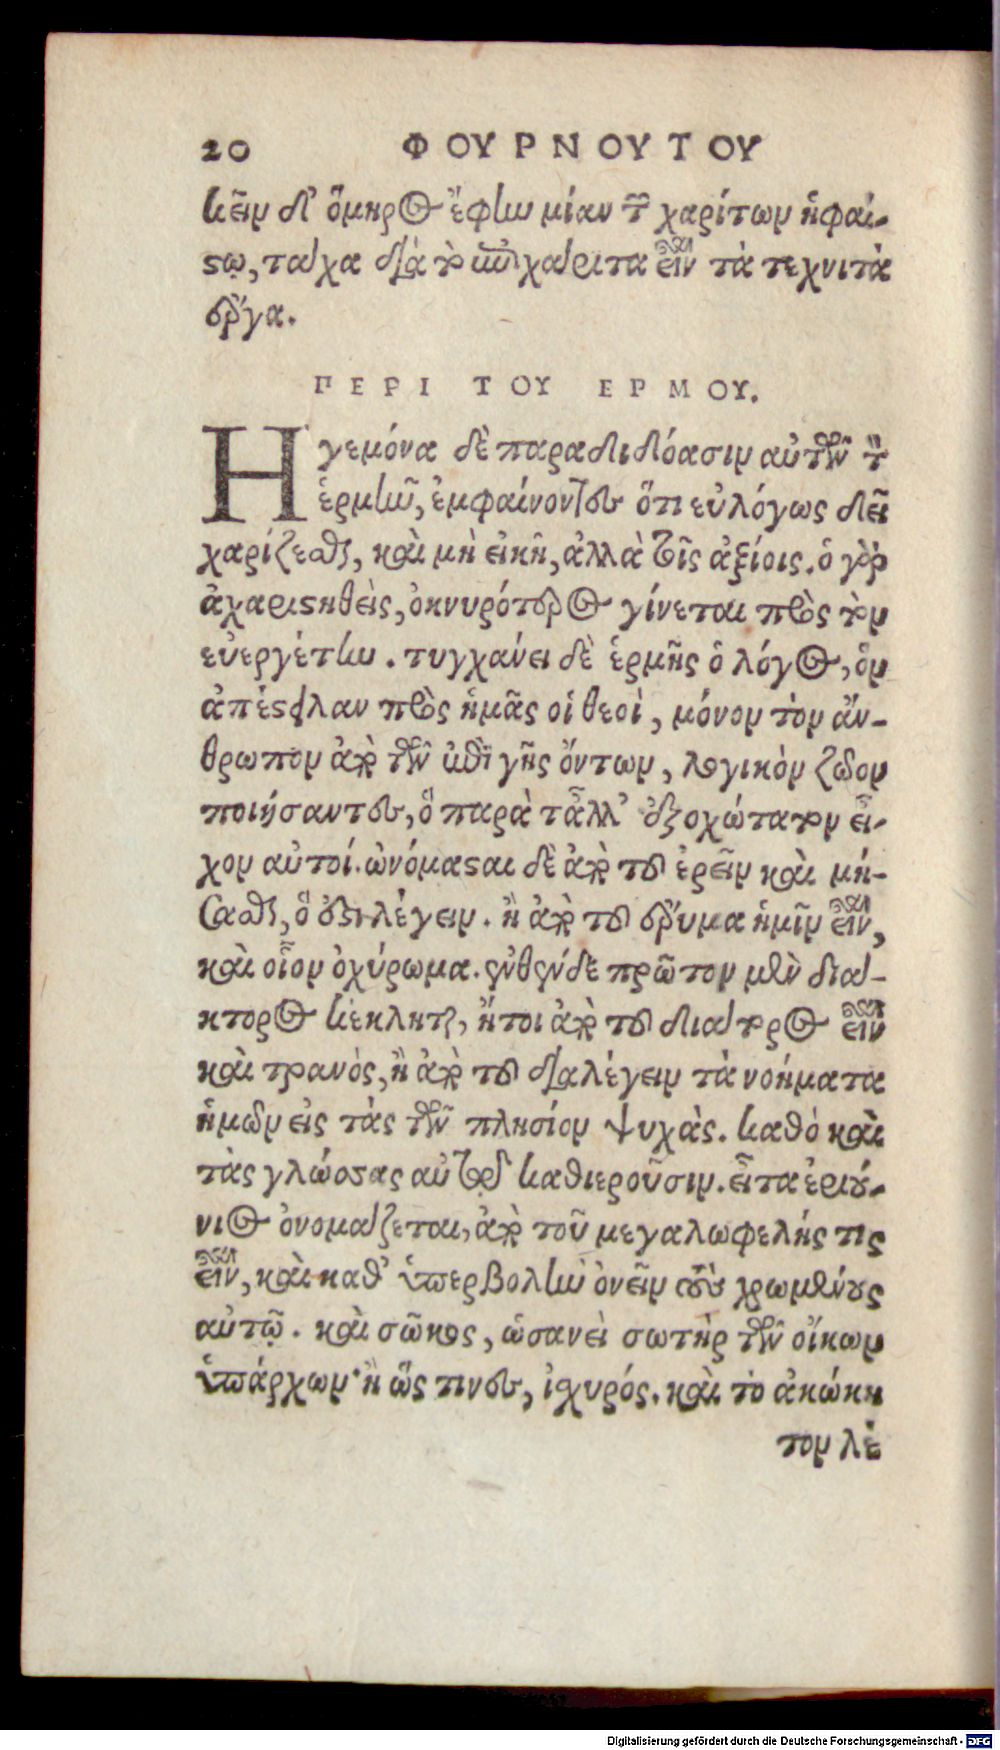 20 ΦΟΥΡΝΟΥΤΟΥ
κεῖν δ' ὅμηρος ἔφην μίαν τῶν χαρίτων ἡφαί-
στῳ, τάχα διὰ τὸ ἐπιχάριτα εἶναι τὰ τεχνιτὰ
ἔργα.
ΠΕΡΙ ΤΟΥ ΕΡΜΟΥ.
Ηγεμόνα δὲ παραδιδόασιν αὐτῶν τὸν
ἑρμῆν, ἐμφαίνοντες ὅτι εὐλόγως δεῖ
χαρίζεσθαι, καὶ μὴ εἰκῆ, ἀλλὰ τοῖς ἀξίοις. ὁ γὰρ
ἀχαριστηθεὶς, ὀκνυρότερος γίνεται πρὸς τὸν
εὐεργέτην. τυγχάνει δὲ ἑρμῆς ὁ λόγος, ὃν
ἀπέστειλαν πρὸς ἡμᾶς οἱ θεοὶ, μόνον τὸν ἄν-
θρωπον ἀπὸ τῶν ἐπὶ γῆς ὄντων, λογικὸν ζῶον
ποιήσαντες, ὃ παρὰ τἆλλ' ἐξοχώτατον εἶ-
χον αὐτοί. ὠνόμασαι δὲ ἀπὸ τοῦ ἐρεῖν καὶ μή-
σασθαι, ὅ ἐστι λέγειν. ἢ ἀπὸ τοῦ ἔρυμα ἡμῖν εἶναι,
καὶ οἷον ὀχύρωμα. ἐνθένδε πρῶτον μὲν διά-
κτορος κέκληται, ἤτοι ἀπὸ τοῦ διάτορος εἶναι
καὶ τρανὸς, ἢ ἀπὸ τοῦ διαλέγειν τὰ νοήματα
ἡμῶν εἰς τὰς τῶν πλησίον ψυχὰς. καθὸ καὶ
τὰς γλώσσας αὐτῷ καθιεροῦσιν. εἶτα ἐριού-
νιος ὀνομάζεται, ἀπὸ τοῦ μεγαλωφελής τις
εἶναι, καὶ καθ' ὑπερβολὴν ὀνεῖν τοὺς χρωμένους
αὐτῷ. καὶ σῶκος, ὡσανεὶ σωτὴρ τῶν οἴκων
ὑπάρχων· ἢ ὥς τινες, ἰσχυρός. καὶ τὸ ἀκώκη
τον λέ
Digitalisierung gefördert durch die Deutsche Forschungsgemeinschaft - DFG